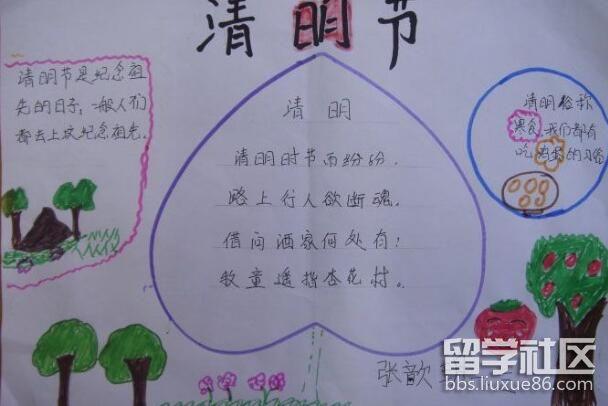 清明节
清明节是纪念祖
先的日子,一般人们
都去上坟纪念祖先。
清 明
清明时节雨纷纷,
路上行人欲断魂。
借问酒家何处有?
牧童遥指杏花村。
清明俗称
寒食,我们都有
吃鸡蛋的习俗
张歆
留学社区
bbs.liuxue86.com